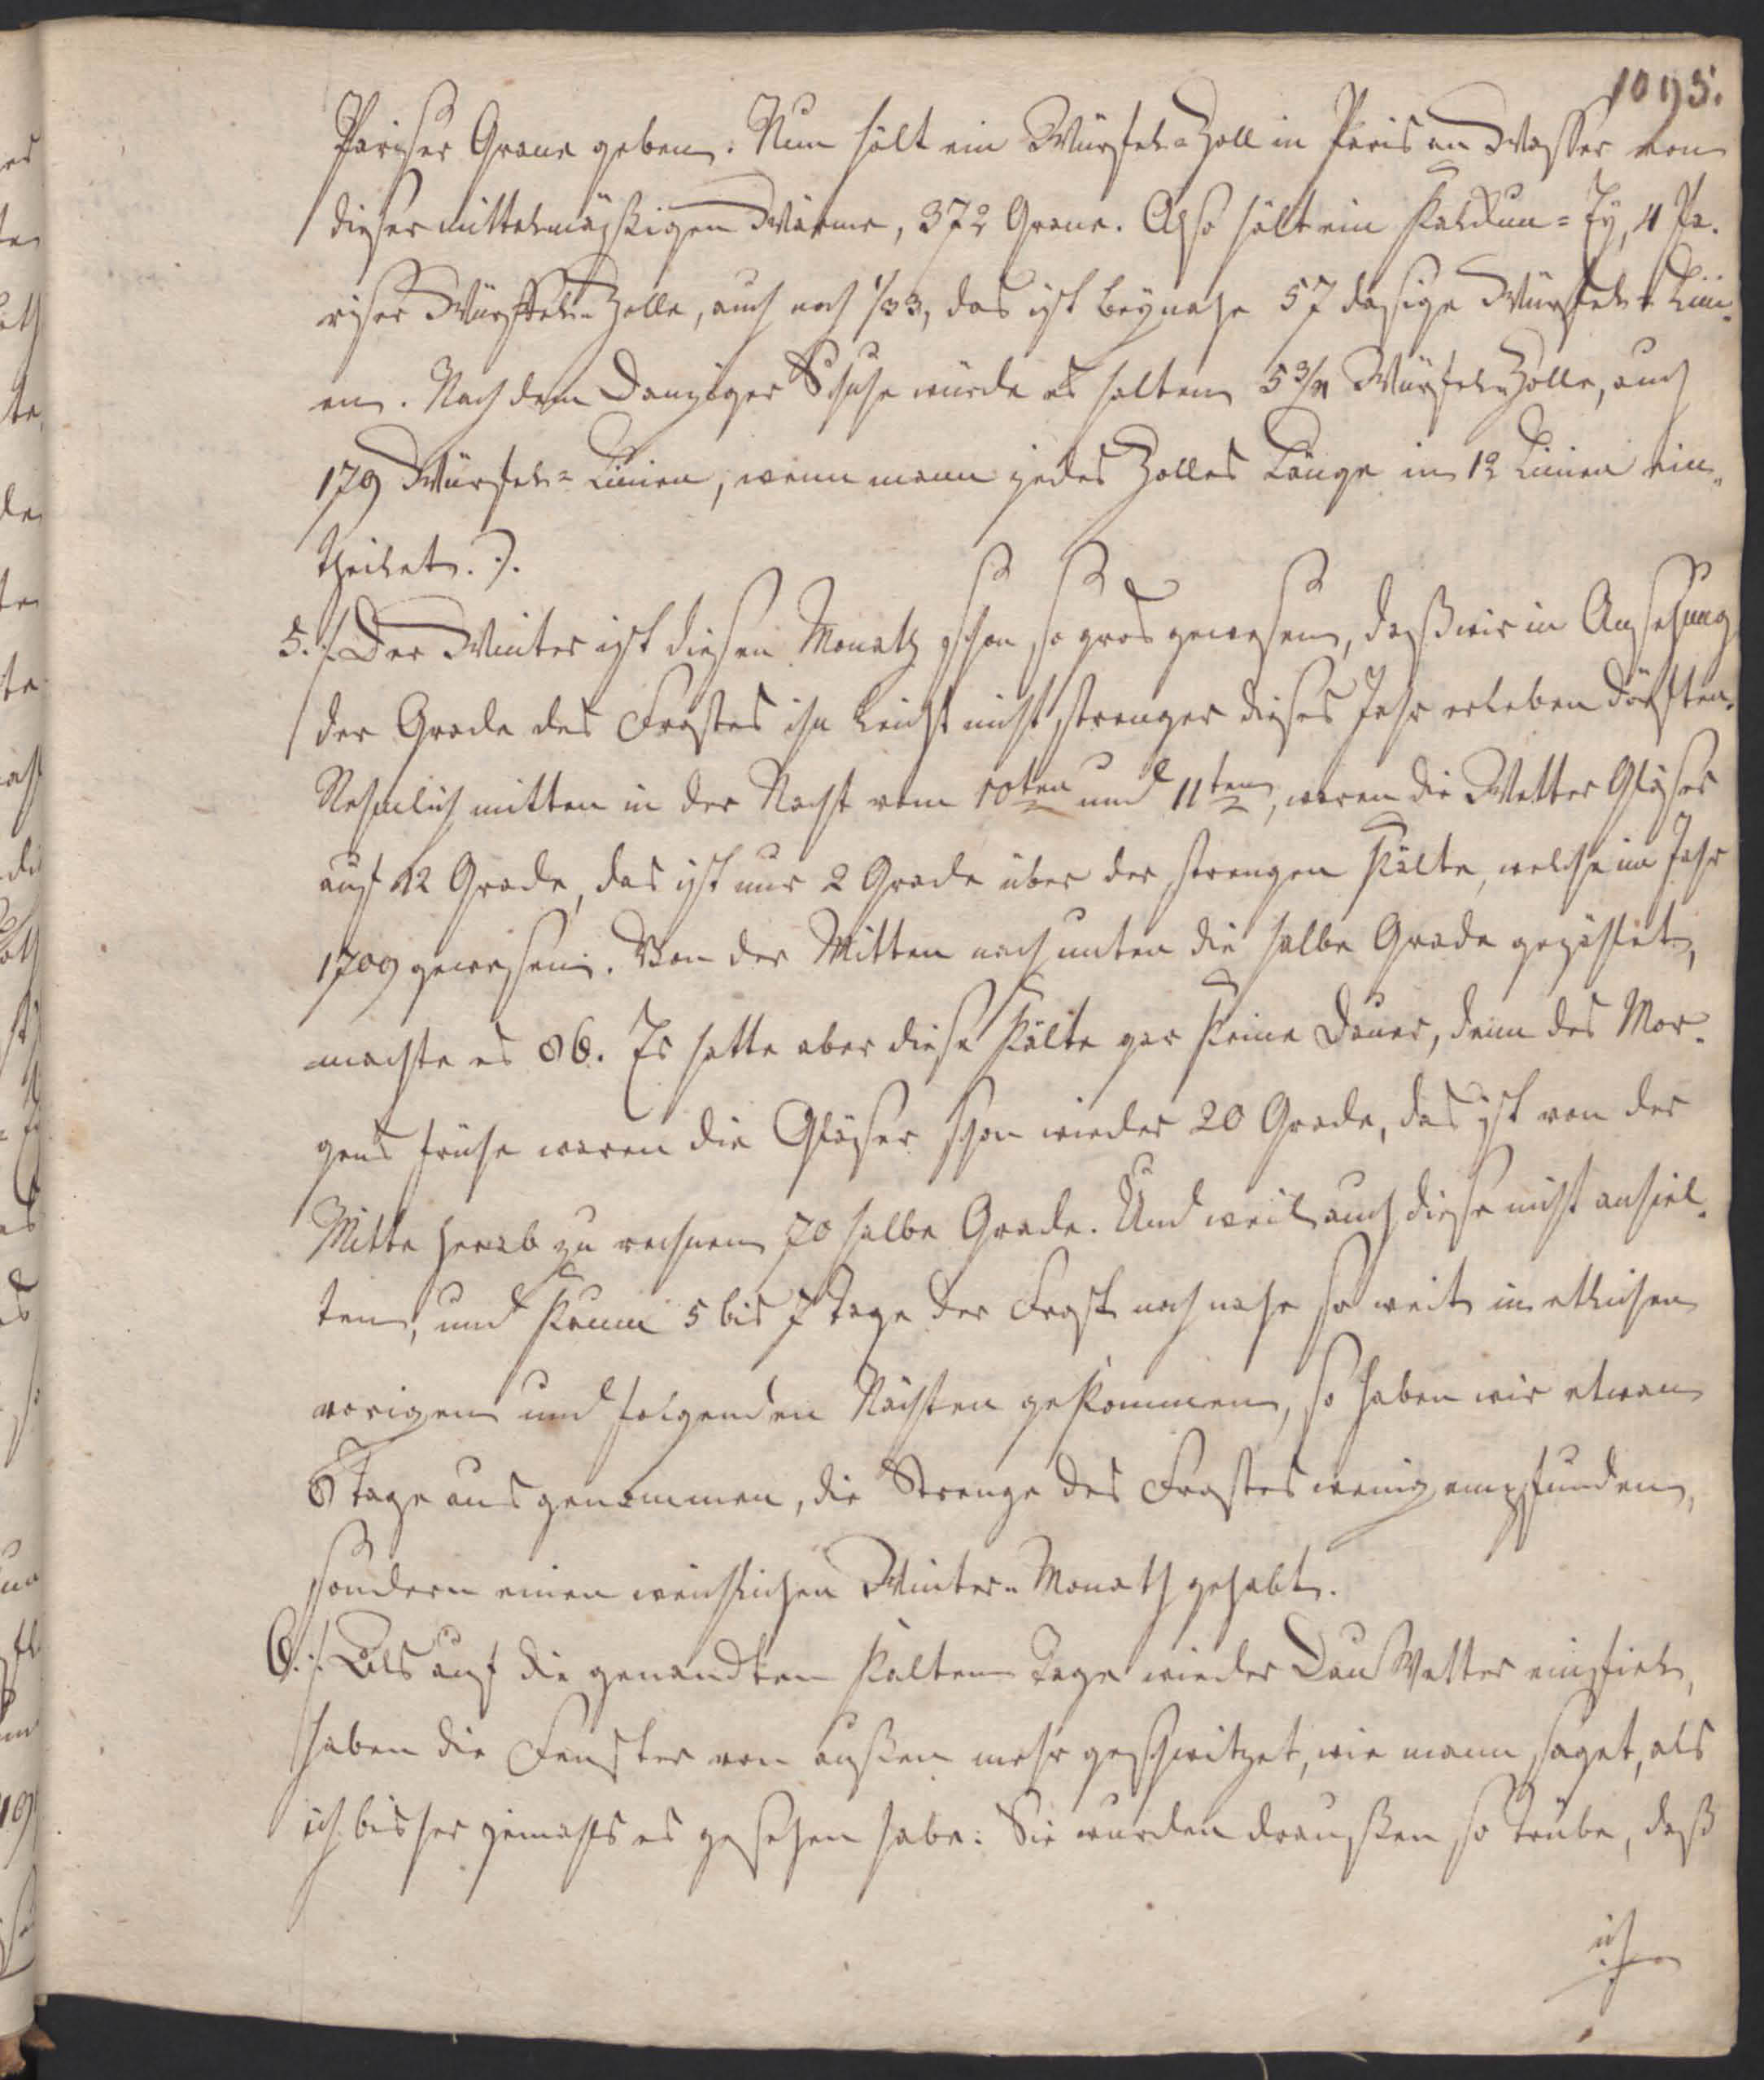 1093.
Pariser Grane geben. Nun hält ein Würfel-Zoll in Paris an Wasser von
dieser mittelmäßigen Wärme, 372 Grane. Also hält ein Kaldun-Ey, 4 Pa-
riser Würffel-Zolle, auch noch 1/33, das ist beynahe 57 dasige Würfel-Lini-
en. Nach dem Danziger Schuhe würde es halten 5 3/4 Würfel-Zolle, auch
179 Würfel-Linien, wenn mann jedes Zolles Länge in 12 Linien ein-
theilet.).
5. /: Der Winter ist diesen Monath schon so gros gewesen, daß wir in Ansehung
der Grade des Frostes ihn leicht nicht strenger dieses Jahr erleben dörften.
Nehmlich mitten in der Nacht vom 10ten und 11ten, waren die Wetter Gläser
auf 12 Grade, das ist nur 2 Grade über der strengen Kälte, welche im Jahr
1709 gewesen. Von der Mitten nach unten die halbe Grade gezählet,
machte es 86. Es hatte aber diese Kälte gar keine Dauer, denn des Mor-
gens frühe waren die Gläser schon wieder 20 Grade, das ist von der
Mitte herab zu rechnen 70 halbe Grade. Und weil auch diese nicht anhiel-
ten, und kaum 5 bis 7 Tage der Frost nach nahe so weit in etlichen
vorigen und folgenden Nächten gekommen, so haben wir etwan
6 Tage ausgenommen, die Strenge des Frostes wenig empfunden,
sondern einen weichlichen Winter-Monath gehabt.
6. /: Als auf die genandten kalten Tage wieder Dau Wetter einfiel,
haben die Fenster von außen mehr geschwitzet, wie mann saget, als
ich bisher jemahls es gesehen habe: Sie wurden draußen so trübe, daß
ich